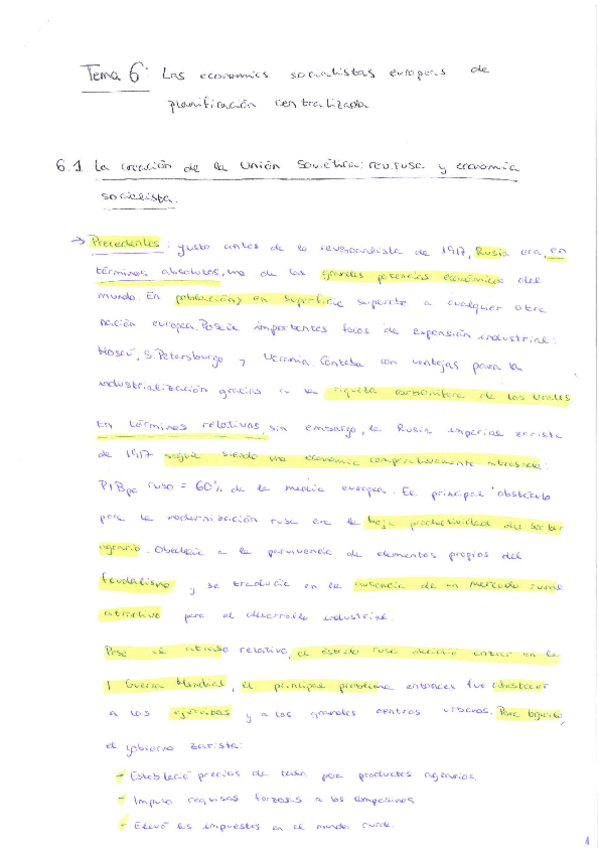 Tema 6: Las economías socialistas europeas de
planificación centralizada
6.1 La creación de la Unión Soviética: rev.rusa y economía
socialista.
→ Precedentes: justo antes de la rev.socialista de 1917, Rusia era, en
términos absolutos, una de las grandes potencias económicas del
mundo. En población y en superficie superaba a cualquier otra
nación europea. Poseía importantes focos de expansión industrial:
Moscú, S.Petersburgo y Ucrania. Contaba con ventajas para la
industrialización gracias a la riqueza carbonífera de los Urales
En términos relativos, sin embargo, la Rusia imperial zarista
de 1917 seguía siendo una economía comparativamente atrasada:
PIBpc ruso = 60% de la media europea. El principal obstáculo
para la modernización rusa era la baja productividad del sector
agrario. Obedecía a la pervivencia de elementos propios del
feudalismo y se traducía en la ausencia de un mercado rural
atractivo para el desarrollo industrial.
Pese al atraso relativo, el estado ruso decidió entrar en la
I Guerra Mundial, el principal problema entonces fue abastecer
a los ejércitos y a los grandes centros urbanos. Para lograrlo,
el gobierno zarista:
- Estableció precios de tasa por productos agrarios.
- Impuso requisas forzosas a los campesinos
- Elevó los impuestos en el mundo rural.
1